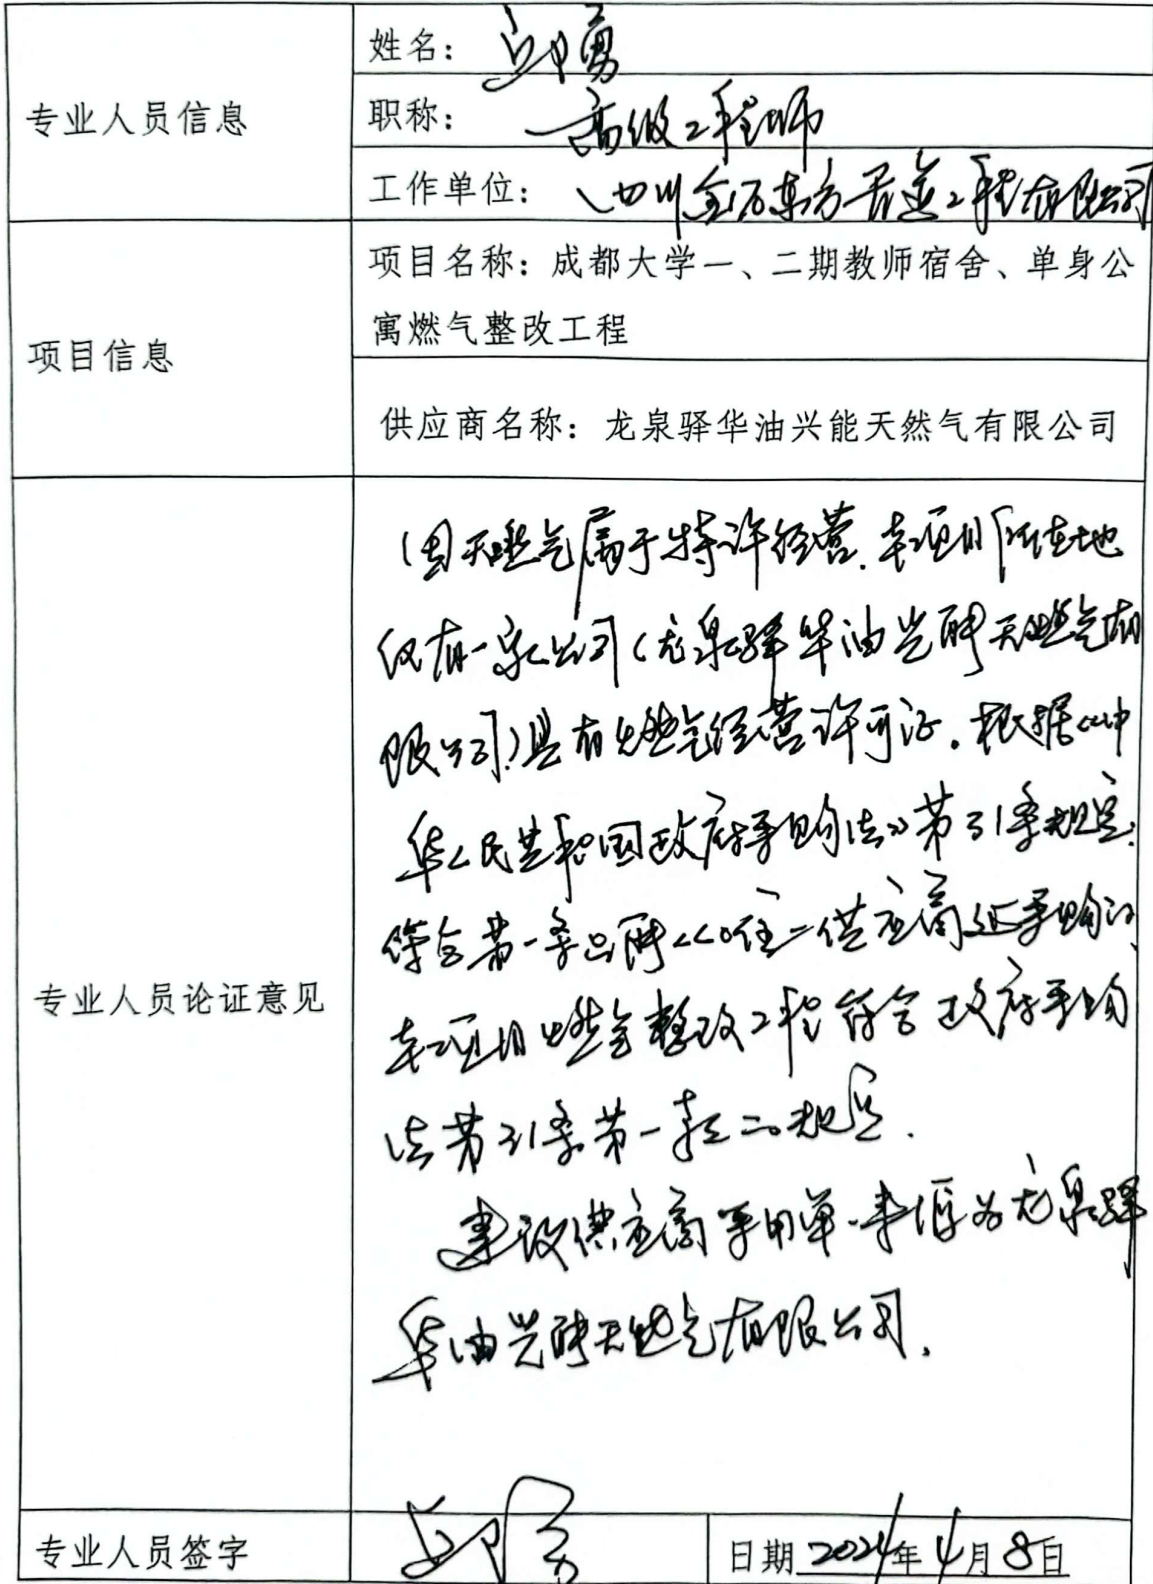 专业人员信息
姓名：邱勇
职称：高级工程师
工作单位：四川金石东方 工程有限公司
项目信息
项目名称：成都大学一、二期教师宿舍、单身公
寓燃气整改工程
供应商名称：龙泉驿华油兴能天然气有限公司
专业人员论证意见
因天燃气属于特许经营，本项目所在地
仅有一家公司（龙泉驿华油兴能天燃气有
限公司）具有燃气经营许可证。根据《中
华人民共和国政府采购法》第31条规定，
符合第一条 唯一供应商 采购的
本项目燃气整改工程符合政府采购
法第31条第一款 规定.
建议供应商采用单一来源为龙泉驿
华油兴能天燃气有限公司.
专业人员签字
邱勇
日期 2024年4月8日